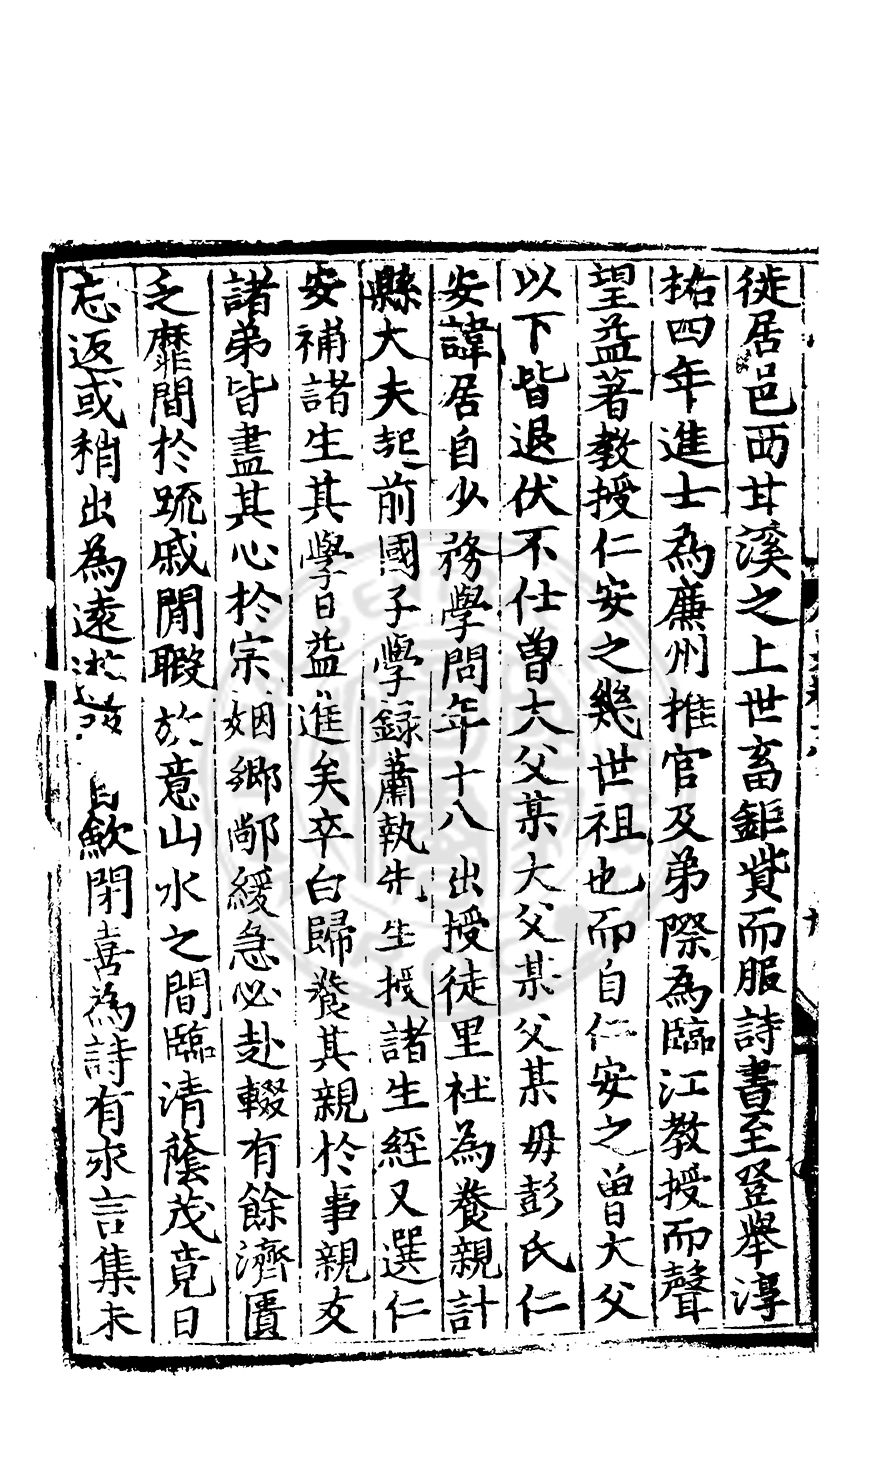 徙居邑西甘溪之上世畜鉅貲而服詩書至登舉淳
祐四年進士為廉州推官及弟際為臨江教授而聲
望益著教授仁安之幾世祖也而自仁安之曾大父
以下皆退伏不仕曾大父某大父某父某毋彭氏仁
安諱居自少務學問年十八出授徒里社為養親計
縣大夫起前國子學錄蕭執先生授諸生經又選仁
安補諸生其學日益進矣卒白歸養其親於事親友
諸弟皆盡其心於宗姻鄉鄰緩急必赴輟有餘濟匱
乏靡間於踈戚閒暇放意山水之間臨清蔭茂竟日
忘返或稍出為遠遊 歛閉喜為詩有永言集未